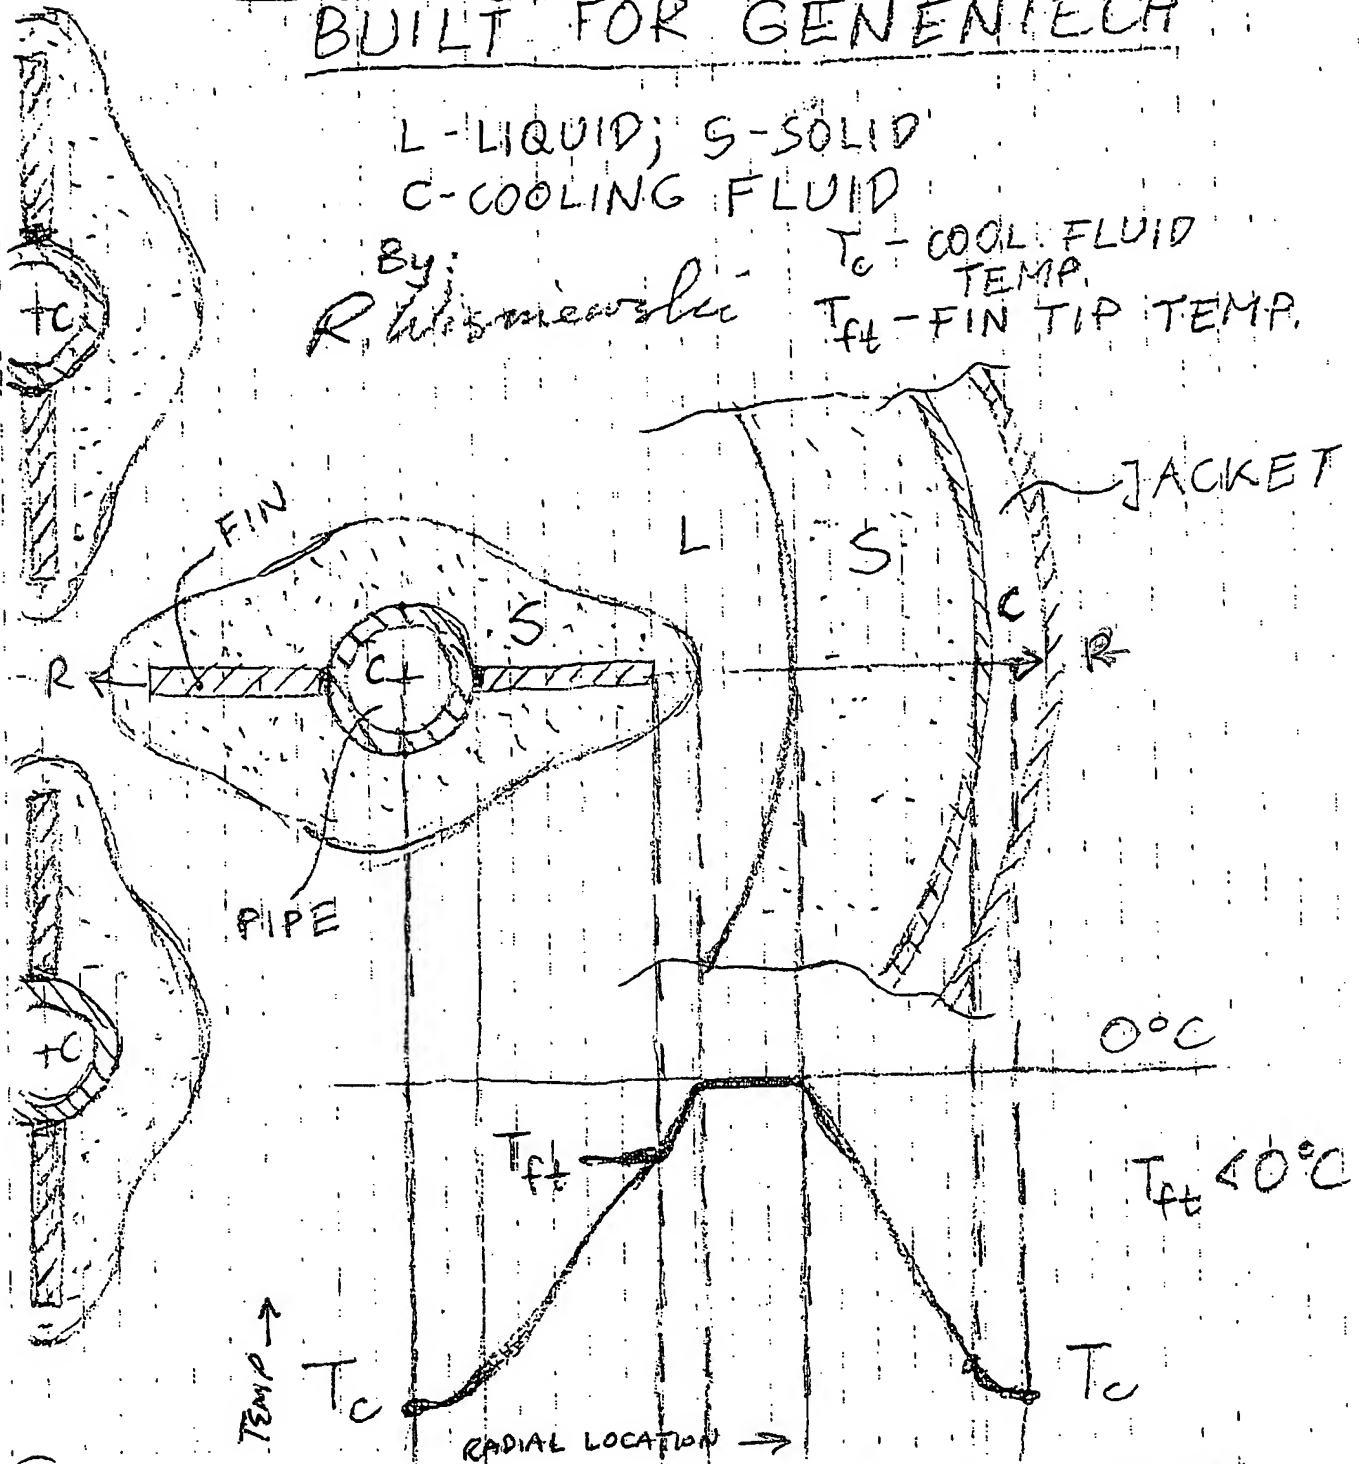 BUILT FOR GENENTECH
L-LIQUID; S-SOLID
C-COOLING FLUID
By:
R. Wisniewski
Tc - COOL. FLUID
TEMP.
Tft - FIN TIP TEMP.
+C
JACKET
FIN
L
S
S
C
C+
R
R
PIPE
+C
0°C
Tft
Tft < 0°C
TEMP →
Tc
Tc
RADIAL LOCATION →